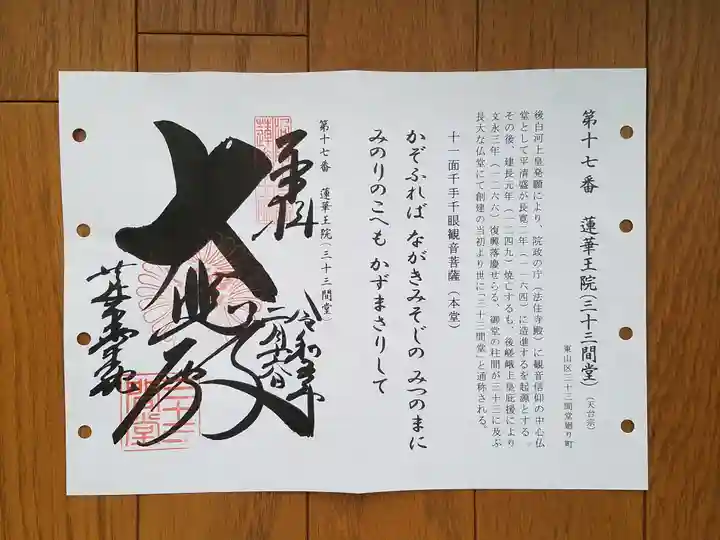 第十七番 蓮華王院(三十三間堂)(天台宗)
東山区三十三間堂廻り町
後白河上皇発願により、院政の庁(法住寺殿)に観音信仰の中心仏
堂として平清盛が長寛二年(一一六四)に造進するを起源とする。
その後、建長元年(一二四九)焼亡するも、後嵯峨上皇庇援により
文永三年(一二六六)復興落慶せらる、御堂の柱間が三十三に及ぶ
長大な仏堂にて創建の当初より世に「三十三間堂」と通称される。
十一面千手千眼観音菩薩(本堂)
かぞふれば ながきみそじの みつのまに
みのりのこへも かずまさりして
第十七番 蓮華王院(三十三間堂)
奉拝
大悲殿
蓮華王院
三十三
間堂